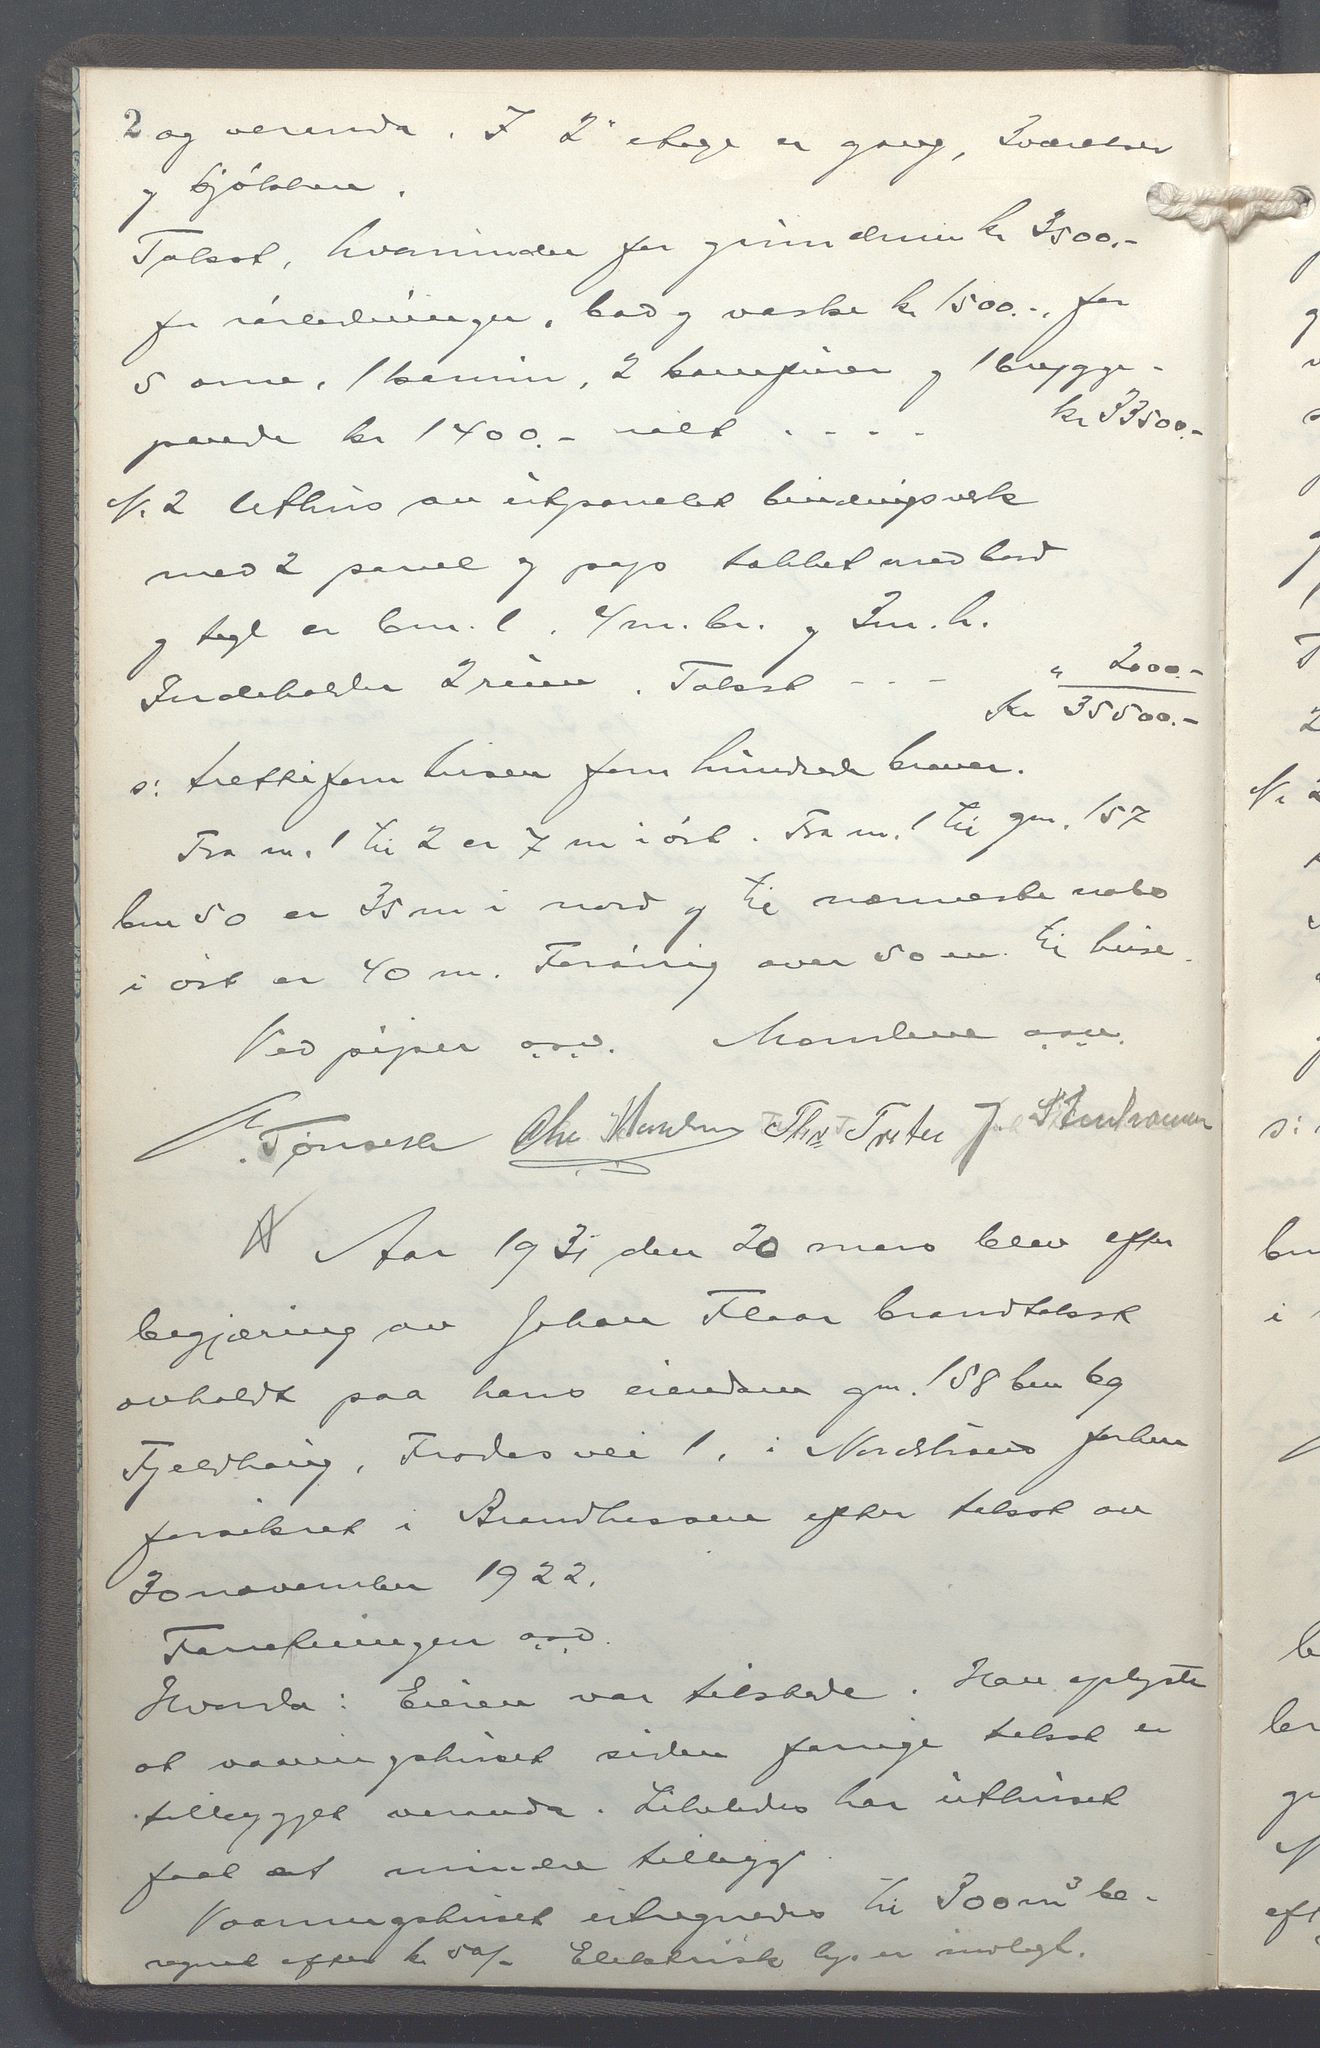 2 og veranda. I 2' etage er gang, 3 værelser
og kjøkken.
Takst, hvorunder for grundmur kr 3500.-
for rørledninger, bad og vaske kr 1500.-, for
5 ovne, 1 kamin, 2 komfurer og 1 brygge-
pande kr 1400.- ialt . . . . kr 33500.-
Nr 2 Uthus av utpanelet bindingsverk
med 2 panel og pap tækket med bord
og tegl er 6 m. l. 4 m. br. og 3 m. h.
Indeholder 2 rum. Takst - - - " 2000.-
Kr 35500.-
s: trettifem tusen fem hundrede kroner.
Fra nr. 1 til 2 er 7 m i øst. Fra nr. 1 til gnr. 157
bnr 50 er 35 m i nord og til nærmeste nabo
i øst er 40 m. Forøvrig over 50 m til huse.
Ved piper o.s.v. Mandene o.s.v.
Tønnesen Thv Treter
Aar 1931 den 20 mars blev efter
begjæring av Johan Flaar brandtakst
avholdt paa hans eiendom gnr. 158 bnr 69
Fjeldhaug, Frodes vei 1, i Nordstrand forhen
forsikret i Brandkassen efter takst av
30 november 1922.
Forretningen o.s.v.
Hvorda: Eieren var tilstede. Han oplyste
at vaaningshuset siden forrige takst er
tilbygget veranda. Likeledes har uthuset
faat et mindre tilbygg.
Vaaningshuset utregnedes til 300 m³ be-
regnet efter kr 50/- Elektrisk lys er indlagt.